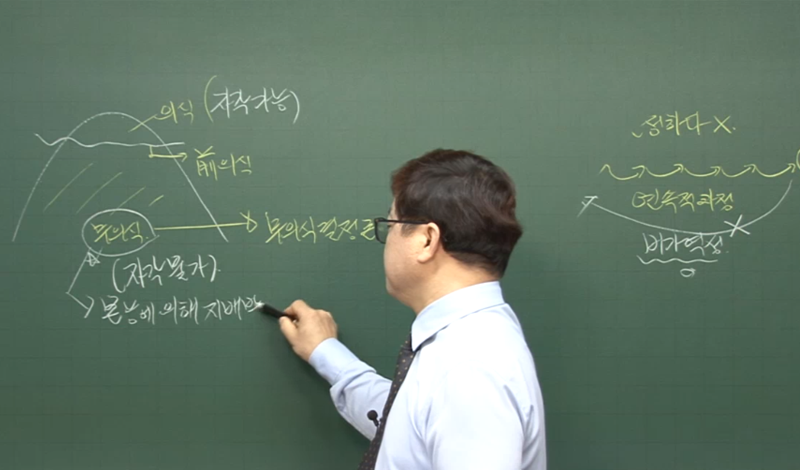 의식 (자각가능)
前의식
무의식
무의식결정론
(자각불가)
본능에 의해 지배받
정하다 X.
연속적과정
비가역성